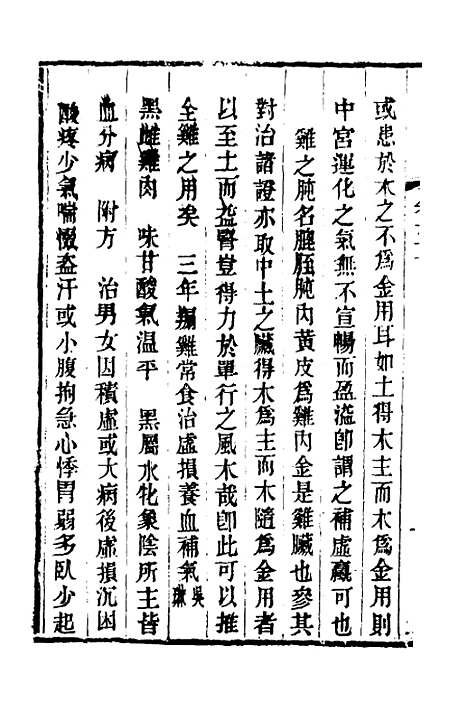 或患於木之不爲金用耳如土得木主而木爲金用則
中宮運化之氣無不宣暢而盈溢卽謂之補虛羸可也
雞之肫名膍胵肫內黃皮爲雞內金是雞臟也參其
對治諸證亦取中土之臟得木爲主而木隨爲金用者
以至土而益腎豈得力於單行之風木哉卽此可以推
全雞之用矣　三年騸雞常食治虛損養血補氣吳瑞
黑雌雞肉　味甘酸氣溫平　黑屬水牝象陰所主皆
血分病　附方　治男女因積虛或大病後虛損沉困
酸疼少氣喘惙盗汗或小腹拘急心悸胃弱多臥少起